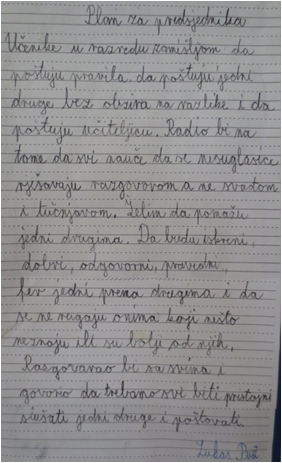 Plan za predsjednika
Učenike u razredu zamišljam da
poštuju pravila, da poštuju jedni
druge bez obzira na razlike i da
poštuju učiteljicu. Radio bi na
tome da svi nauče da se nesuglasice
rješavaju razgovorom a ne svađom
i tučnjavom. Želim da pomažu
jedni drugima. Da budu iskreni,
dobri, odgovorni, pravedni,
fer jedni prema drugima i da
se ne rugaju onima koji nešto
ne znaju ili su bolji od njih.
Razgovarao bi sa svima i
govorio da trebamo svi biti pristojni
slušati jedni druge i poštovati.
Lukas